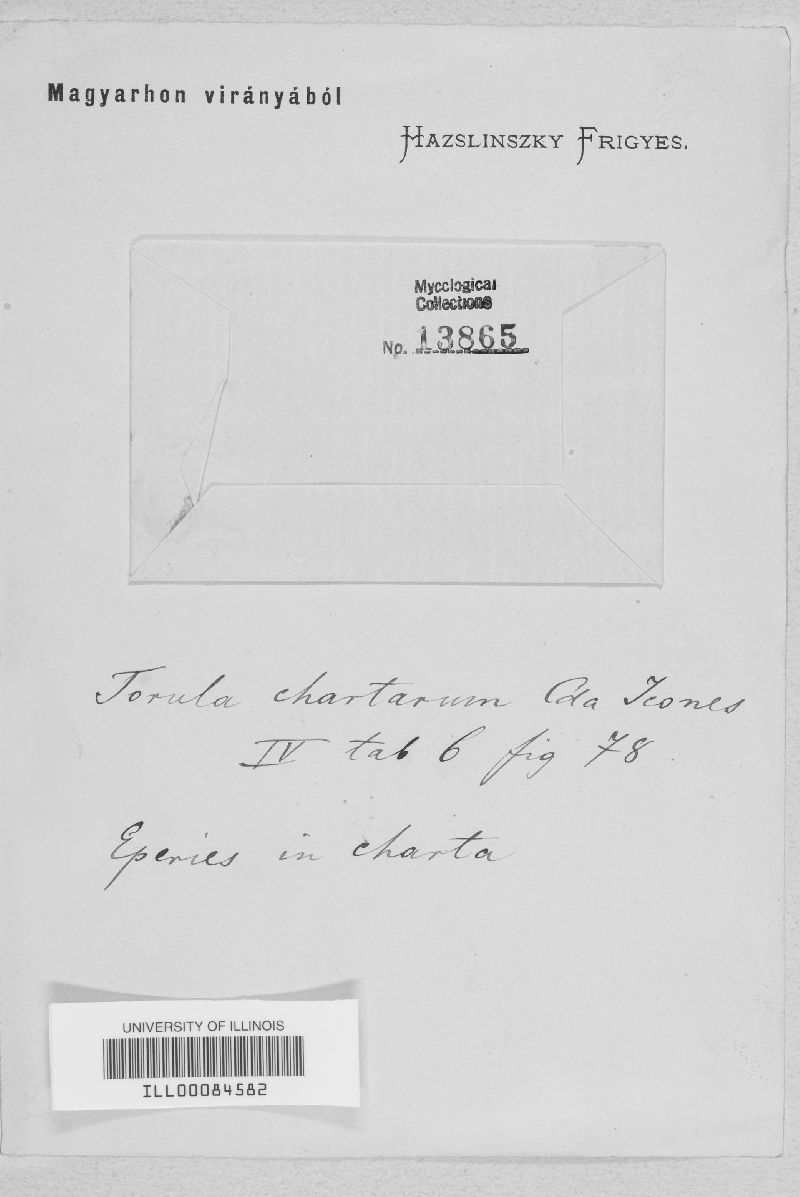 Magyarhon virányából
HAZSLINSZKY FRIGYES.
Mycological
Collections
No. 13865
Torula chartarum Cda Icones
IV tab 6 fig 78
Eperies in charta
UNIVERSITY OF ILLINOIS
ILL00084582